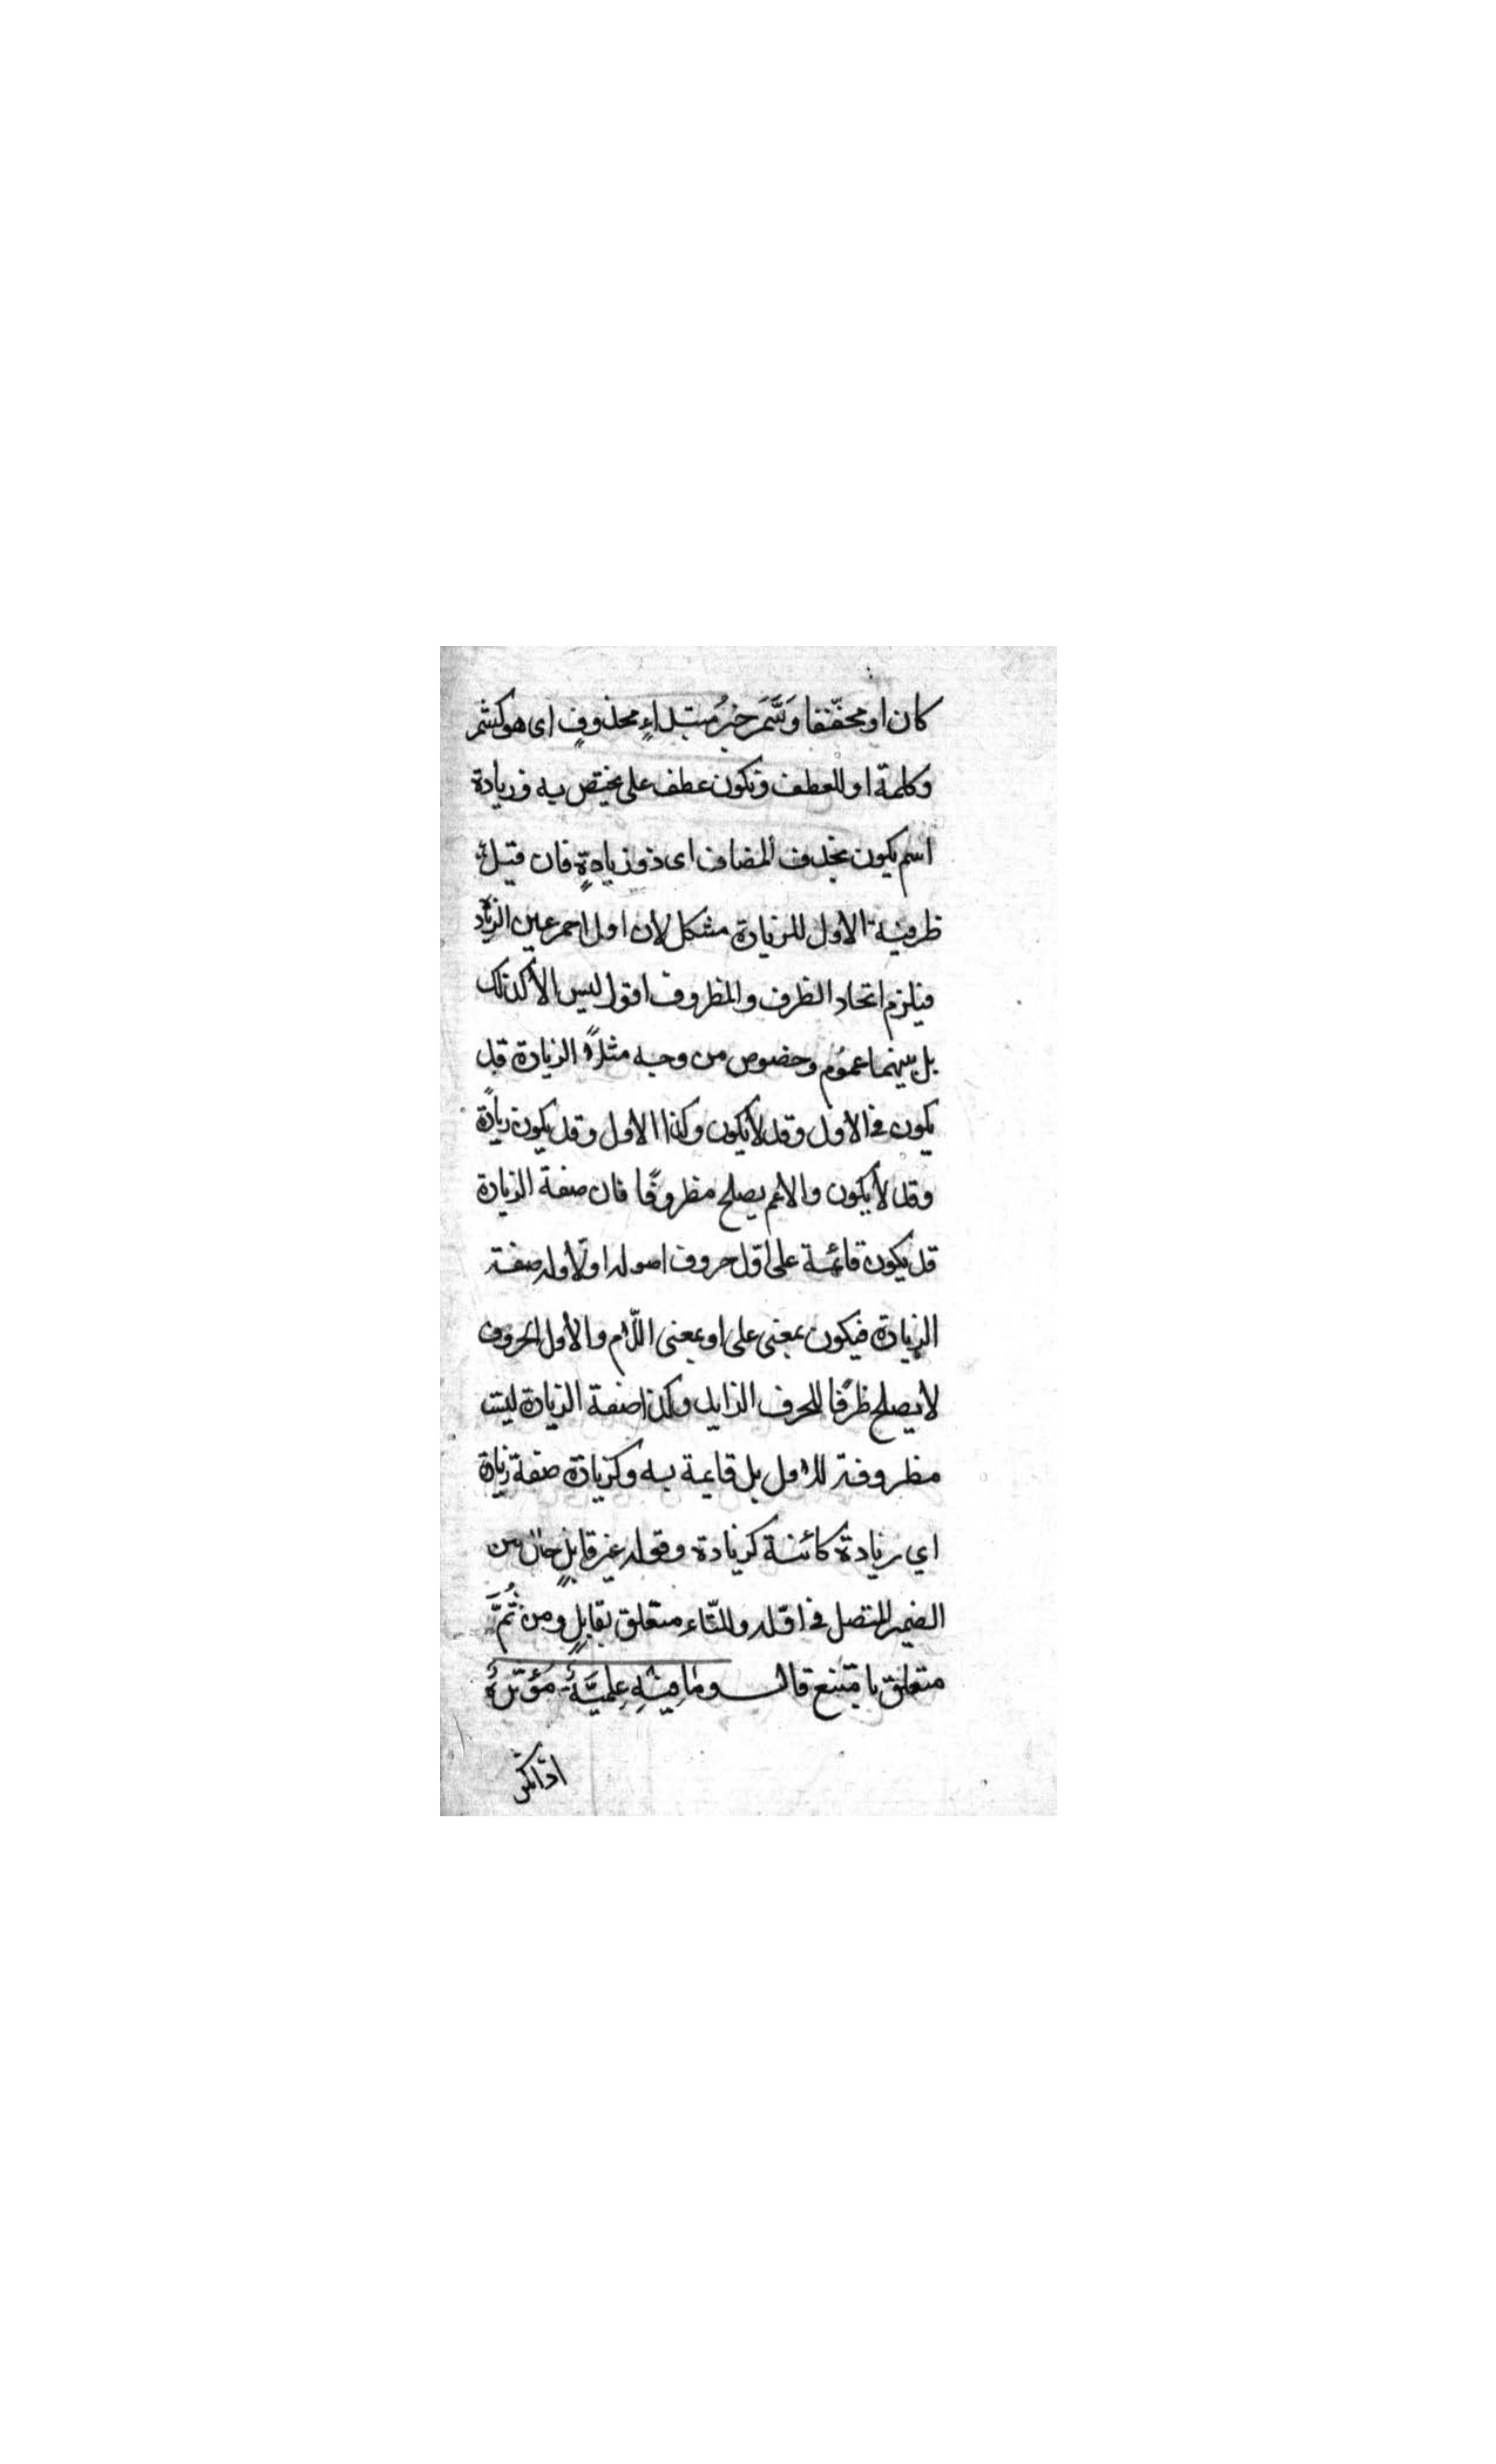 كان او محقّقا وَشَمَّرَ خبرُ مبتداءٍ محذوفٍ اى هو كشمر
وكلمة او للعطف ويكون عطف على يختص به وزيادة
اسم يكون بحذف المضاف اى ذو زيادةٍ فان قيل
ظرفية الاول للزيادة مشكل لان اول احمر عين الزيادة
فيلزم اتحاد الظرف والمظروف اقول ليس الأ كذلك
بل بينهما عمُوم وخصوص من وجه مثلاً الزيادة قد
يكون فى الاول وقد لا يكون وكذا الاول وقد يكون زيادةً
وقد لا يكون والاعم يصلح مظروفًا فان صفة الزيادة
قد يكون قائمة على اوّل حروف اصوله او لأوله صفة
الزيادة فيكون بمعنى على او بمعنى اللّام والأول الحروف
لا يصلح ظرفًا للحرف الزايد وكذا صفة الزيادة ليست
مظروفة للاول بل قايمة به وكزيادة صفة زيادة
اي زيادة كائنة كزيادة وقوله غير قابلٍ حال من
الضمير المتصل فى اوّله وللتّاء متعلق بقابلٍ ومن ثُمَّ
متعلق بامتنع قال وما فيهِ عِلميَّةٌ مُؤثرةٌ
اذا نكر